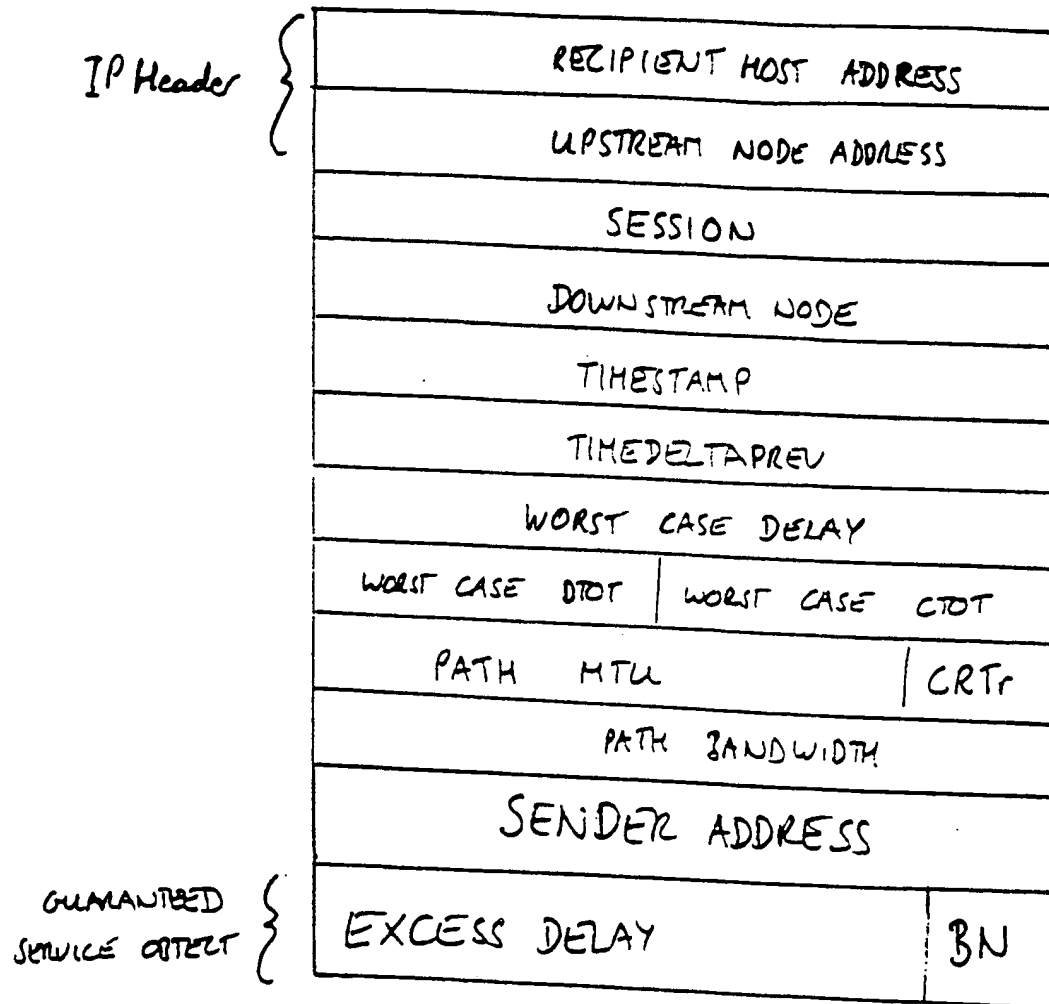 IP Header
RECIPIENT HOST ADDRESS
UPSTREAM NODE ADDRESS
SESSION
DOWNSTREAM NODE
TIMESTAMP
TIMEDELTAPREV
WORST CASE DELAY
WORST CASE DTOT | WORST CASE CTOT
PATH MTU | CRTr
PATH BANDWIDTH
SENDER ADDRESS
GUARANTEED
SERVICE OBJECT
EXCESS DELAY BN